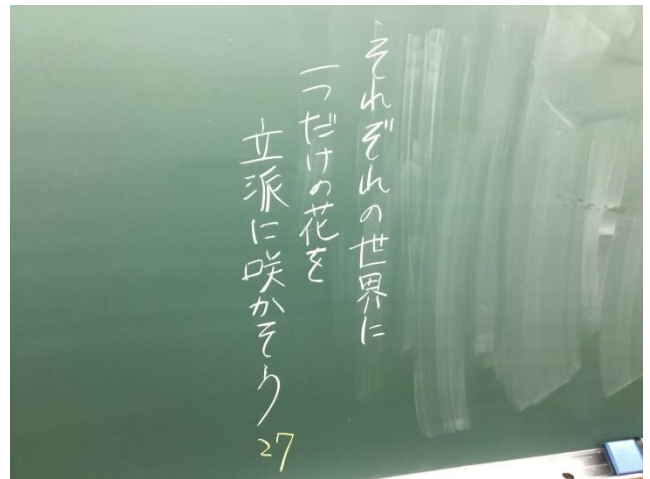 それぞれの世界に
一つだけの花を
立派に咲かそう
27